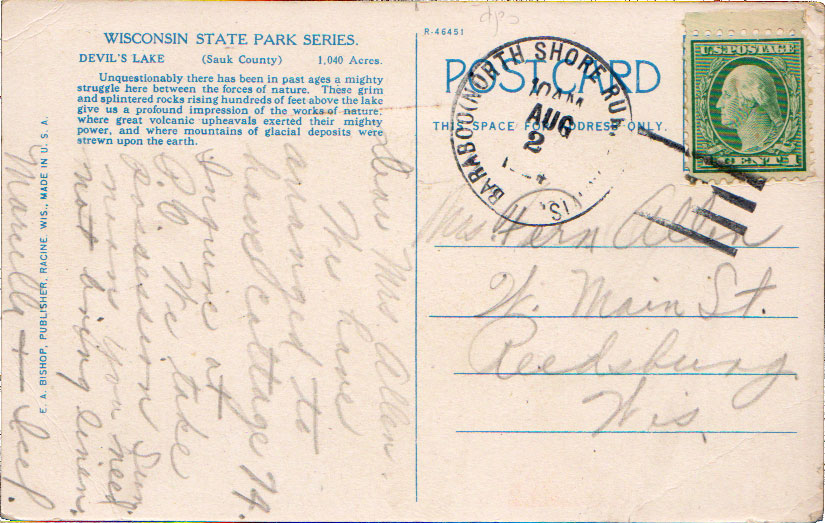 WISCONSIN STATE PARK SERIES.
DEVIL'S LAKE (Sauk County) 1,040 Acres.
Unquestionably there has been in past ages a mighty
struggle here between the forces of nature. These grim
and splintered rocks rising hundreds of feet above the lake
give us a profound impression of the works of nature,
where great volcanic upheavals exerted their mighty
power, and where mountains of glacial deposits were
strewn upon the earth.
E. A. BISHOP, PUBLISHER, RACINE, WIS., MADE IN U. S. A.
Dear Mrs. Allen.
We have
arranged to
have cottage 74.
Inquire at
P.O. We take
possession Sun.
noon You need
not bring linen.
Marcella
R-46451
POST CARD
THIS SPACE FOR ADDRESS ONLY.
BARABOO (NORTH SHORE RUR.
10 AM
AUG
2
WIS.
U.S. POSTAGE
1 CENT 1
Mrs Fern Allen
W. Main St.
Reedsburg
Wis.